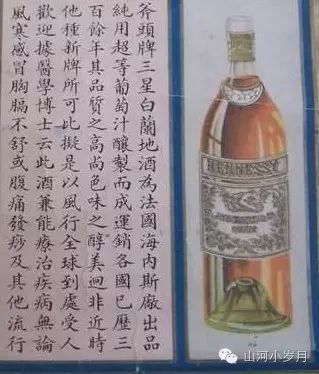 斧頭牌三星白蘭地酒為法國海內斯廠出品
純用超等葡萄汁釀製而成運銷各國已歷三
百餘年其品質之高尚色味之醇美迥非近時
他種新牌所可比擬是以風行全球到處受人
歡迎據醫學博士云此酒兼能療治疾病無論
風寒感冒胸膈不舒或腹痛發痧及其他流行
HENNESSY
山河小岁月